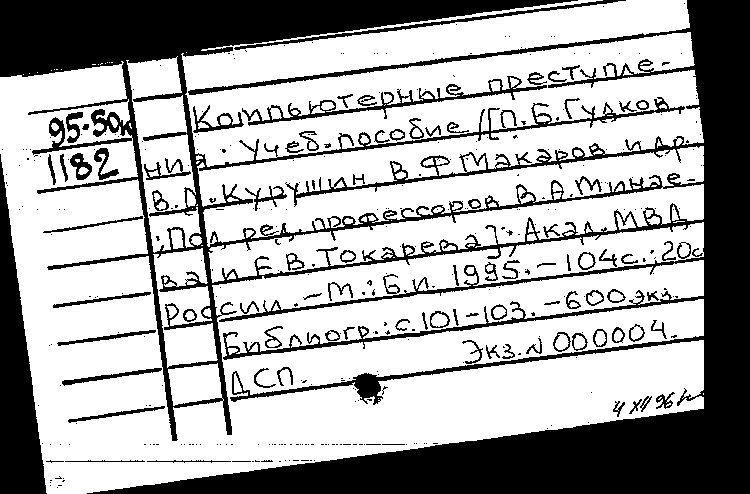 Компьютерные преступле-
95-50к
ния: Учеб. пособие /[П.Б.Гудков,
1182
В.Д. Курушин, В.Ф.Макаров и др.
; Под ред. профессоров В.А.Минае-
ва и Е.В.Токарева]; Акад. МВД
России. - М.: Б.и. 1995. - 104с.; 20с
Библиогр.: с.101-103. - 600 экз.
ДСП. Экз. N 000004.
4 XII 96